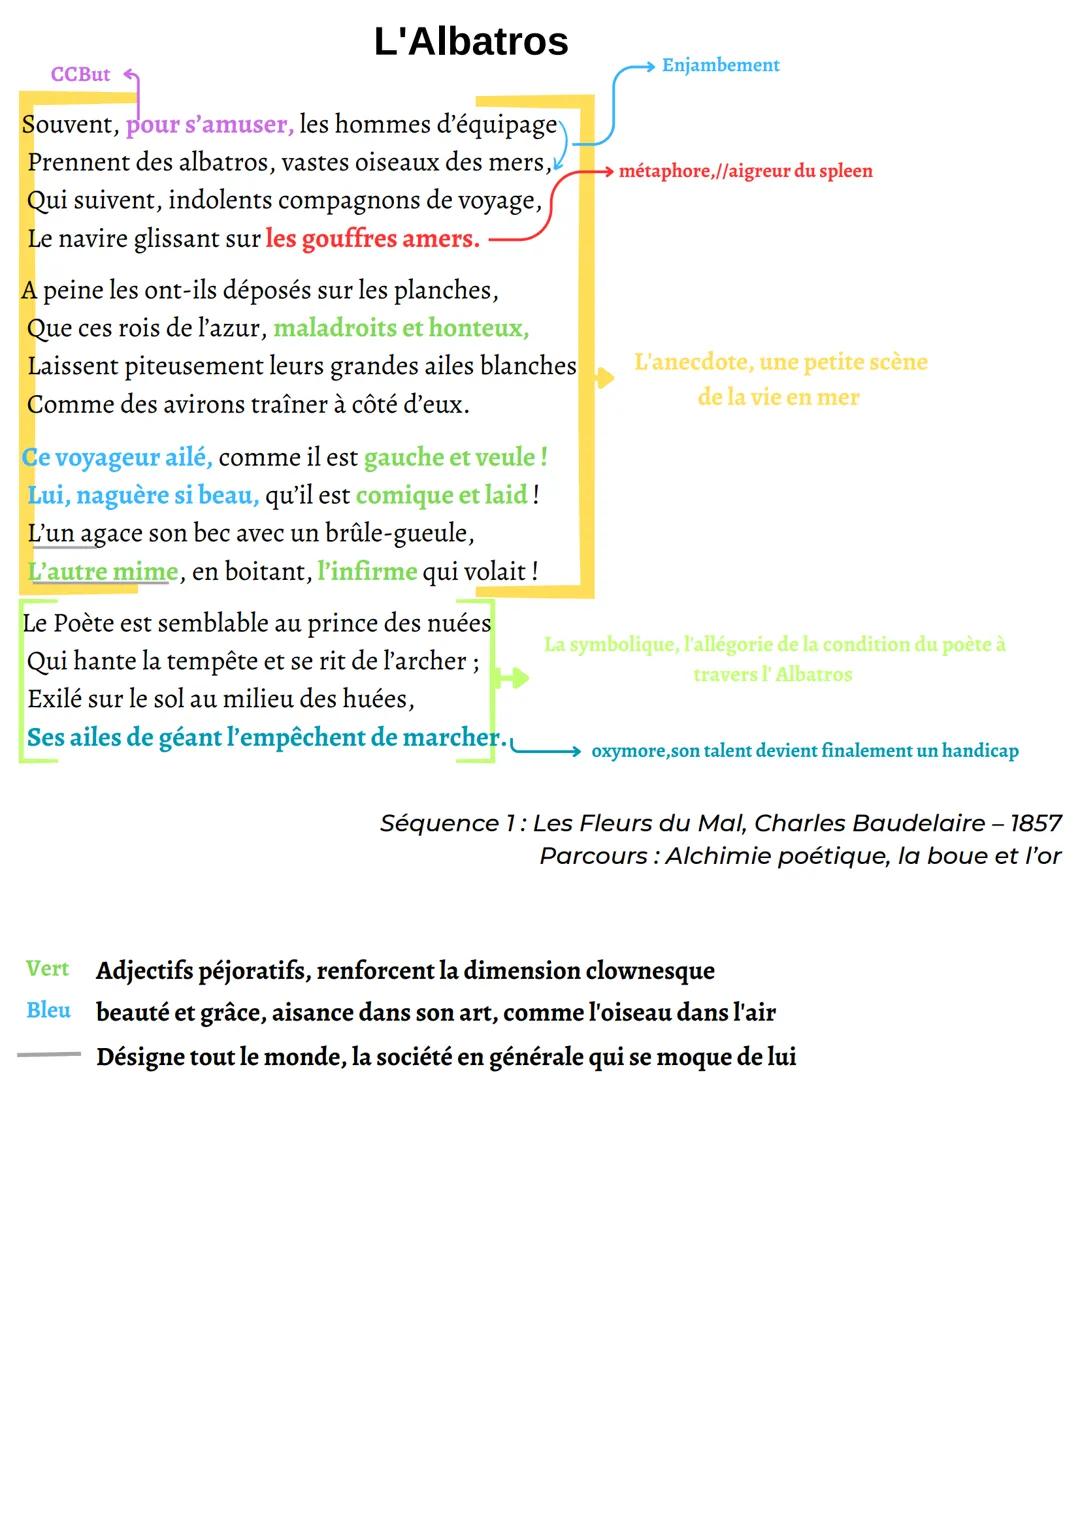 L'Albatros
CCBut
Enjambement
Souvent, pour s’amuser, les hommes d’équipage
Prennent des albatros, vastes oiseaux des mers,
métaphore,//aigreur du spleen
Qui suivent, indolents compagnons de voyage,
Le navire glissant sur les gouffres amers.
A peine les ont-ils déposés sur les planches,
Que ces rois de l’azur, maladroits et honteux,
Laissent piteusement leurs grandes ailes blanches
Comme des avirons traîner à côté d’eux.
L'anecdote, une petite scène
de la vie en mer
Ce voyageur ailé, comme il est gauche et veule !
Lui, naguère si beau, qu’il est comique et laid !
L’un agace son bec avec un brûle-gueule,
L’autre mime, en boitant, l’infirme qui volait !
Le Poète est semblable au prince des nuées
Qui hante la tempête et se rit de l’archer ;
Exilé sur le sol au milieu des huées,
Ses ailes de géant l’empêchent de marcher.
La symbolique, l'allégorie de la condition du poète à
travers l' Albatros
oxymore,son talent devient finalement un handicap
Séquence 1 : Les Fleurs du Mal, Charles Baudelaire – 1857
Parcours : Alchimie poétique, la boue et l’or
Vert Adjectifs péjoratifs, renforcent la dimension clownesque
Bleu beauté et grâce, aisance dans son art, comme l'oiseau dans l'air
Désigne tout le monde, la société en générale qui se moque de lui